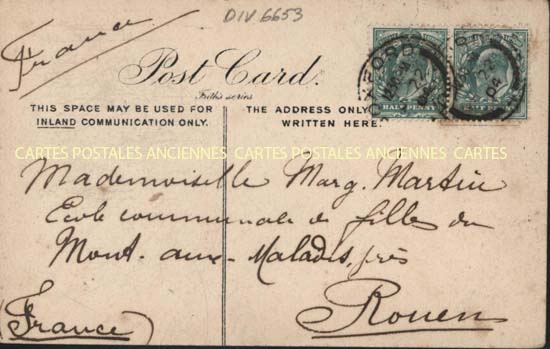 DIV 6653
France
Post Card.
Frith's series
THIS SPACE MAY BE USED FOR
INLAND COMMUNICATION ONLY.
THE ADDRESS ONLY
WRITTEN HERE.
HALF PENNY
HALF PENNY
CARTES POSTALES ANCIENNES CARTES POSTALES ANCIENNES CARTES
Mademoiselle Marg. Martin
Ecole communale de filles du
Mont-aux-Malades, près
Rouen
(France)